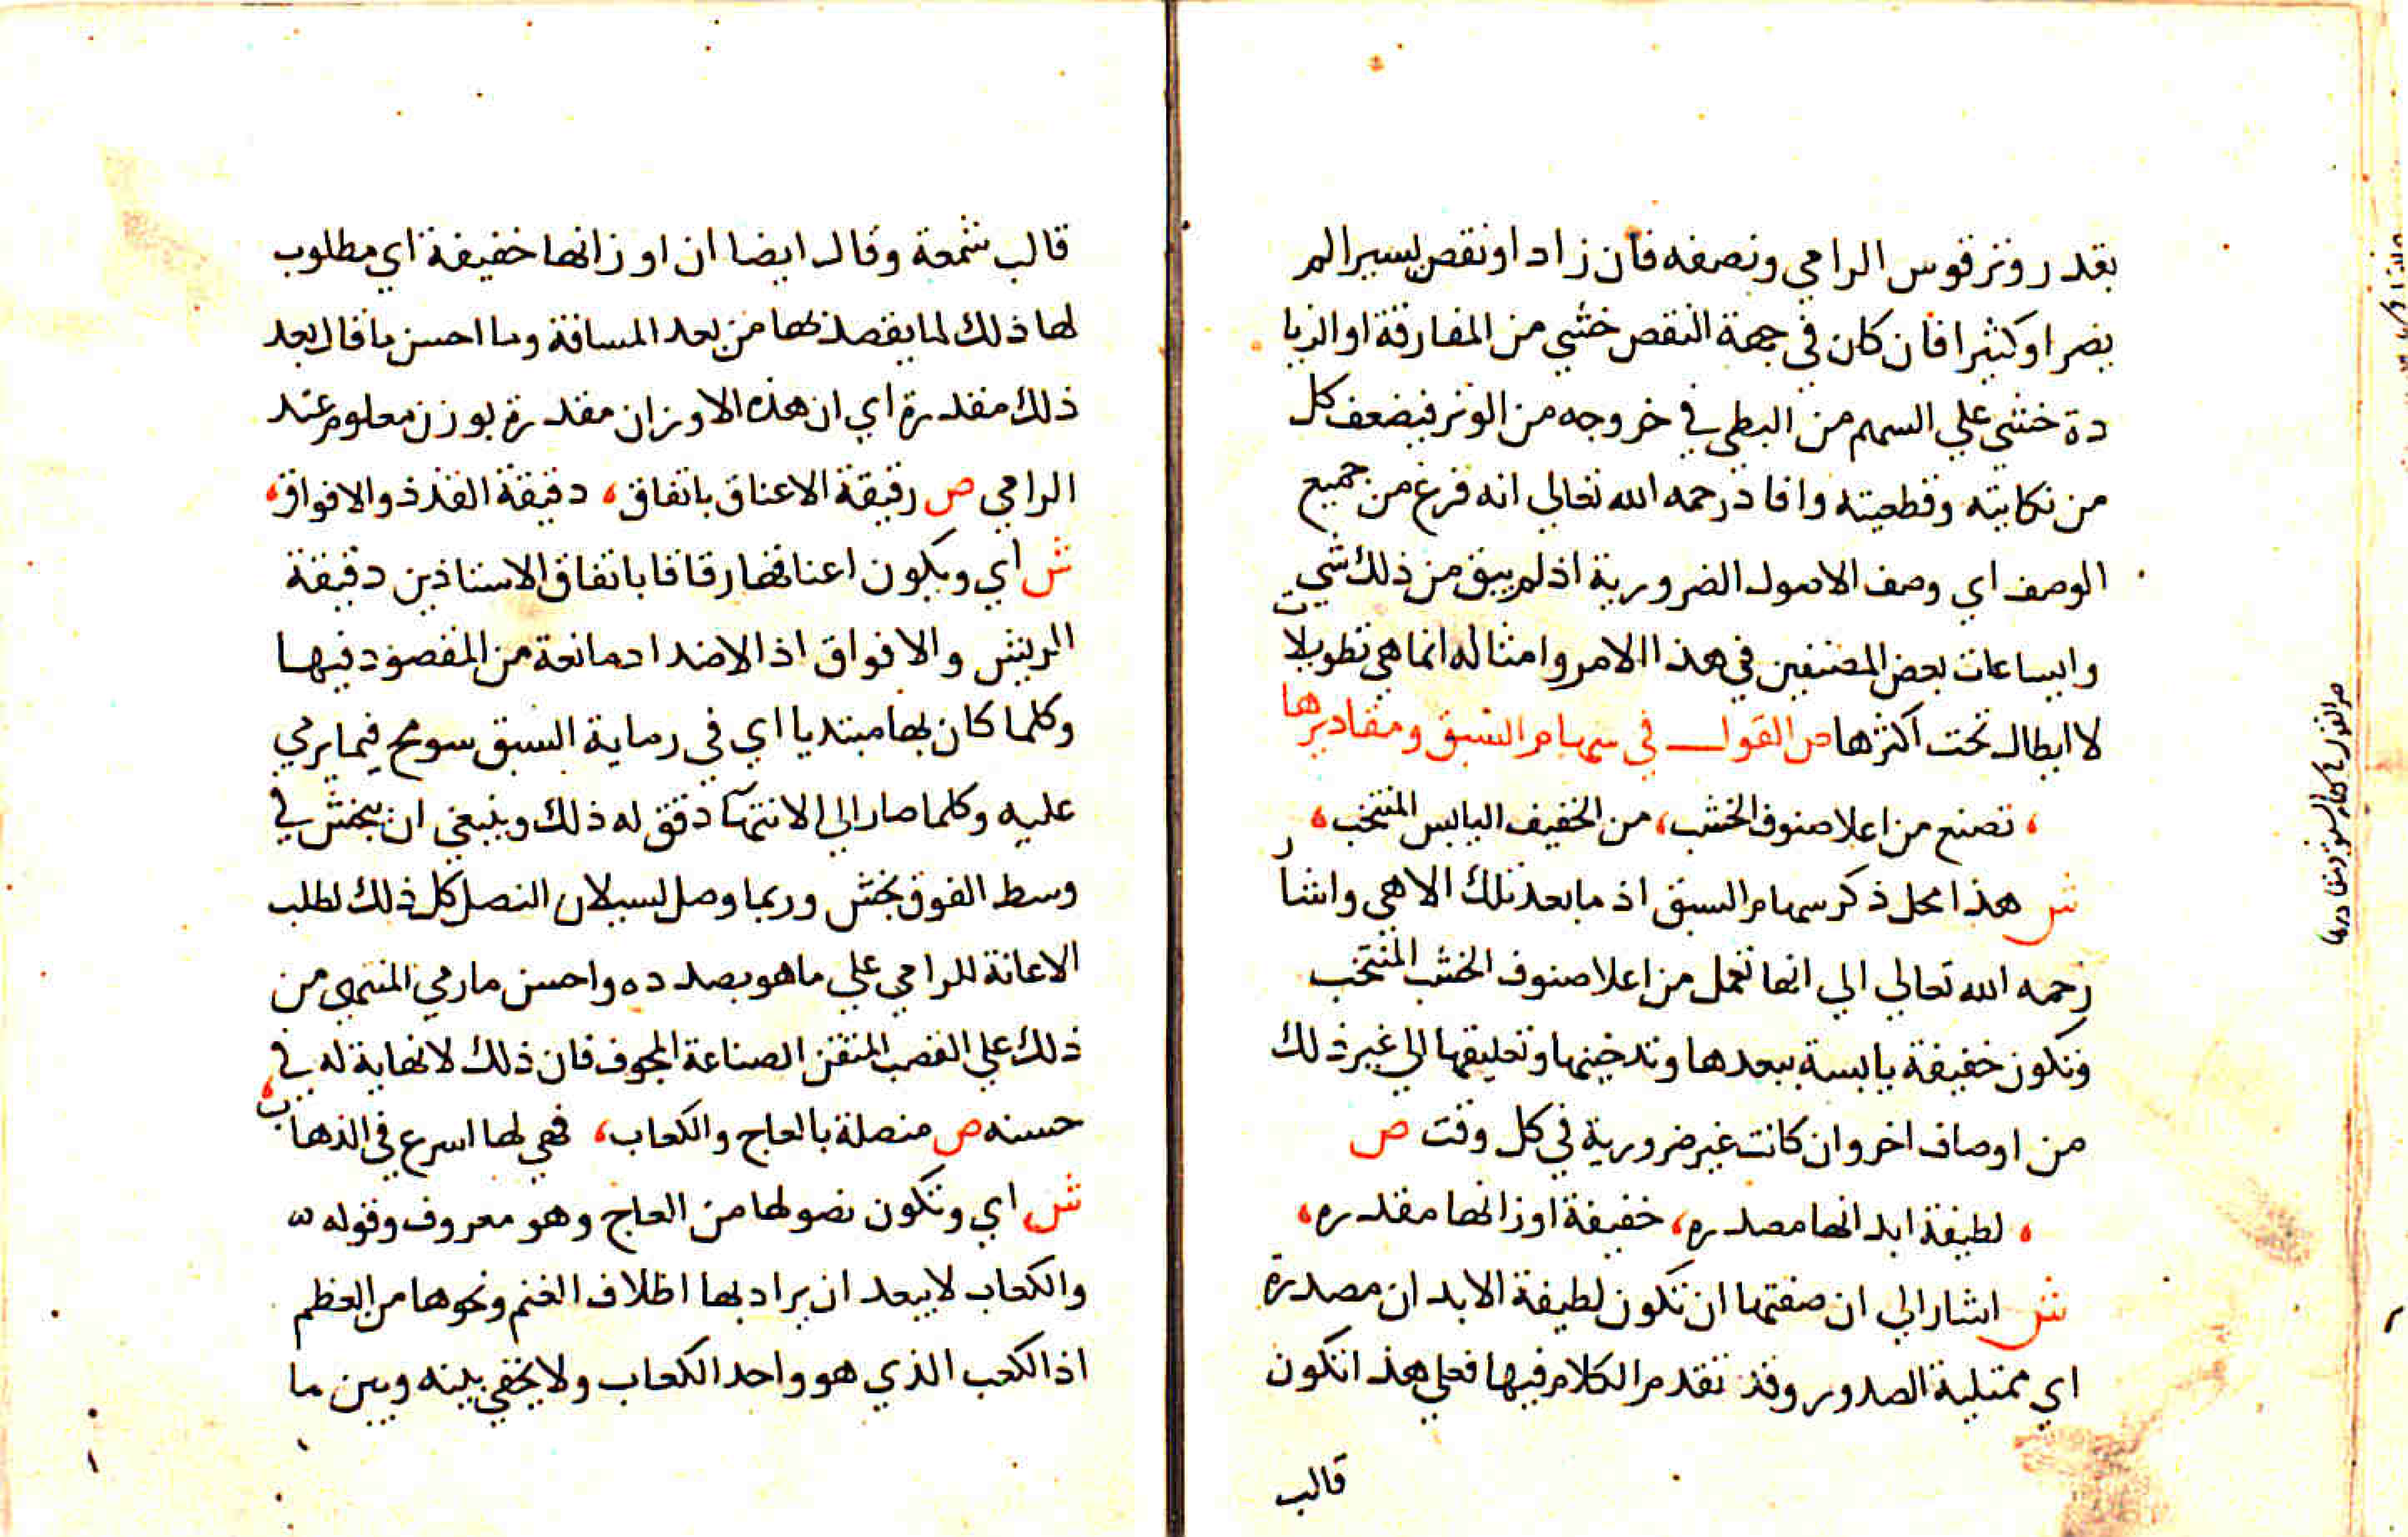 بقدر وتر قوس الرامي ونصفه فان زاد او نقص يسيرا لم
يضر او كثيرا فان كان في جهة النقص خشي من المفارقة او الزيا
دة خشي علي السهم من البطي في خروجه من الوتر فيضعف كل
من نكايته وقطعيته وافاد رحمه الله تعالي انه فرغ من جميع
الوصف اي وصف الاصول الضرورية اذ لم يبق من ذلك شي
واتساعات بعض المصنفين في هذا الامر وامثاله انما هي تطويلات
لا ابطال تحت اكثرها ص القول في سهام السبق ومقاديرها
، تصنع من اعلا صنوف الخشب ، من الخفيف اليابس المنتخب ،
ش هذا محل ذكر سهام السبق اذ ما بعد تلك الا هي واشار
رحمه الله تعالي الي انها تعمل من اعلا صنوف الخشب المنتخب
وتكون خفيفة يابسة ببعدها وتدخينها وتعليقها الي غير ذلك
من اوصاف اخر وان كانت غير ضرورية في كل وقت ص
، لطيفة ابدانها مصدره ، خفيفة اوزانها مقدره ،
ش اشار الي ان صفتها ان تكون لطيفة الابدان مصدرة
اي ممتلية الصدور وقد تقدم الكلام فيها فعلي هذا تكون
قالب
قالب شمعة وقال ايضا ان اوزانها خفيفة اي مطلوب
لها ذلك لما يقصد بها من بعد المسافة وما احسن ما قال بعد
ذلك مقدرة اي ان هذه الاوزان مقدرة بوزن معلوم عند
الرامي ص رقيقة الاعناق باتفاق ، دقيقة القذذ والافواق ،
ش اي ويكون اعناقها رقاقا باتفاق الاستاذين دقيقة
الريش والافواق اذ الاضداد مانعة من المقصود فيها
وكلما كان بها مبتديا اي في رماية السبق سومح فيما يرمي
عليه وكلما صار الي الانتها دقق له ذلك وينبغي ان يبخش في
وسط الفوق بخش وربما وصل لسيلان النصل كل ذلك لطلب
الاعانة للرامي علي ما هو بصدده واحسن ما رمي المنتهي من
ذلك علي القصب المتقن الصناعة المجوف فان ذلك لا نهاية له في
حسنه ص منصلة بالعاج والكعاب ، فهي لها اسرع في الذهاب ،
ش اي وتكون نصولها من العاج وهو معروف وقوله
والكعاب لا يبعد ان يراد بها اظلاف الغنم ونحوها من العظم
اذ الكعب الذي هو واحد الكعاب ولا يخفي بينه وبين ما